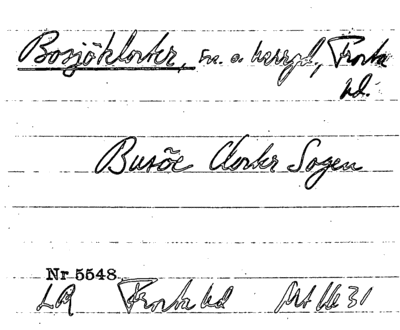 Bosjökloster, sn. o. herrgd, Frosta
hd.
Busöe Closter Sogen
Nr 5548
LR Frosta hd